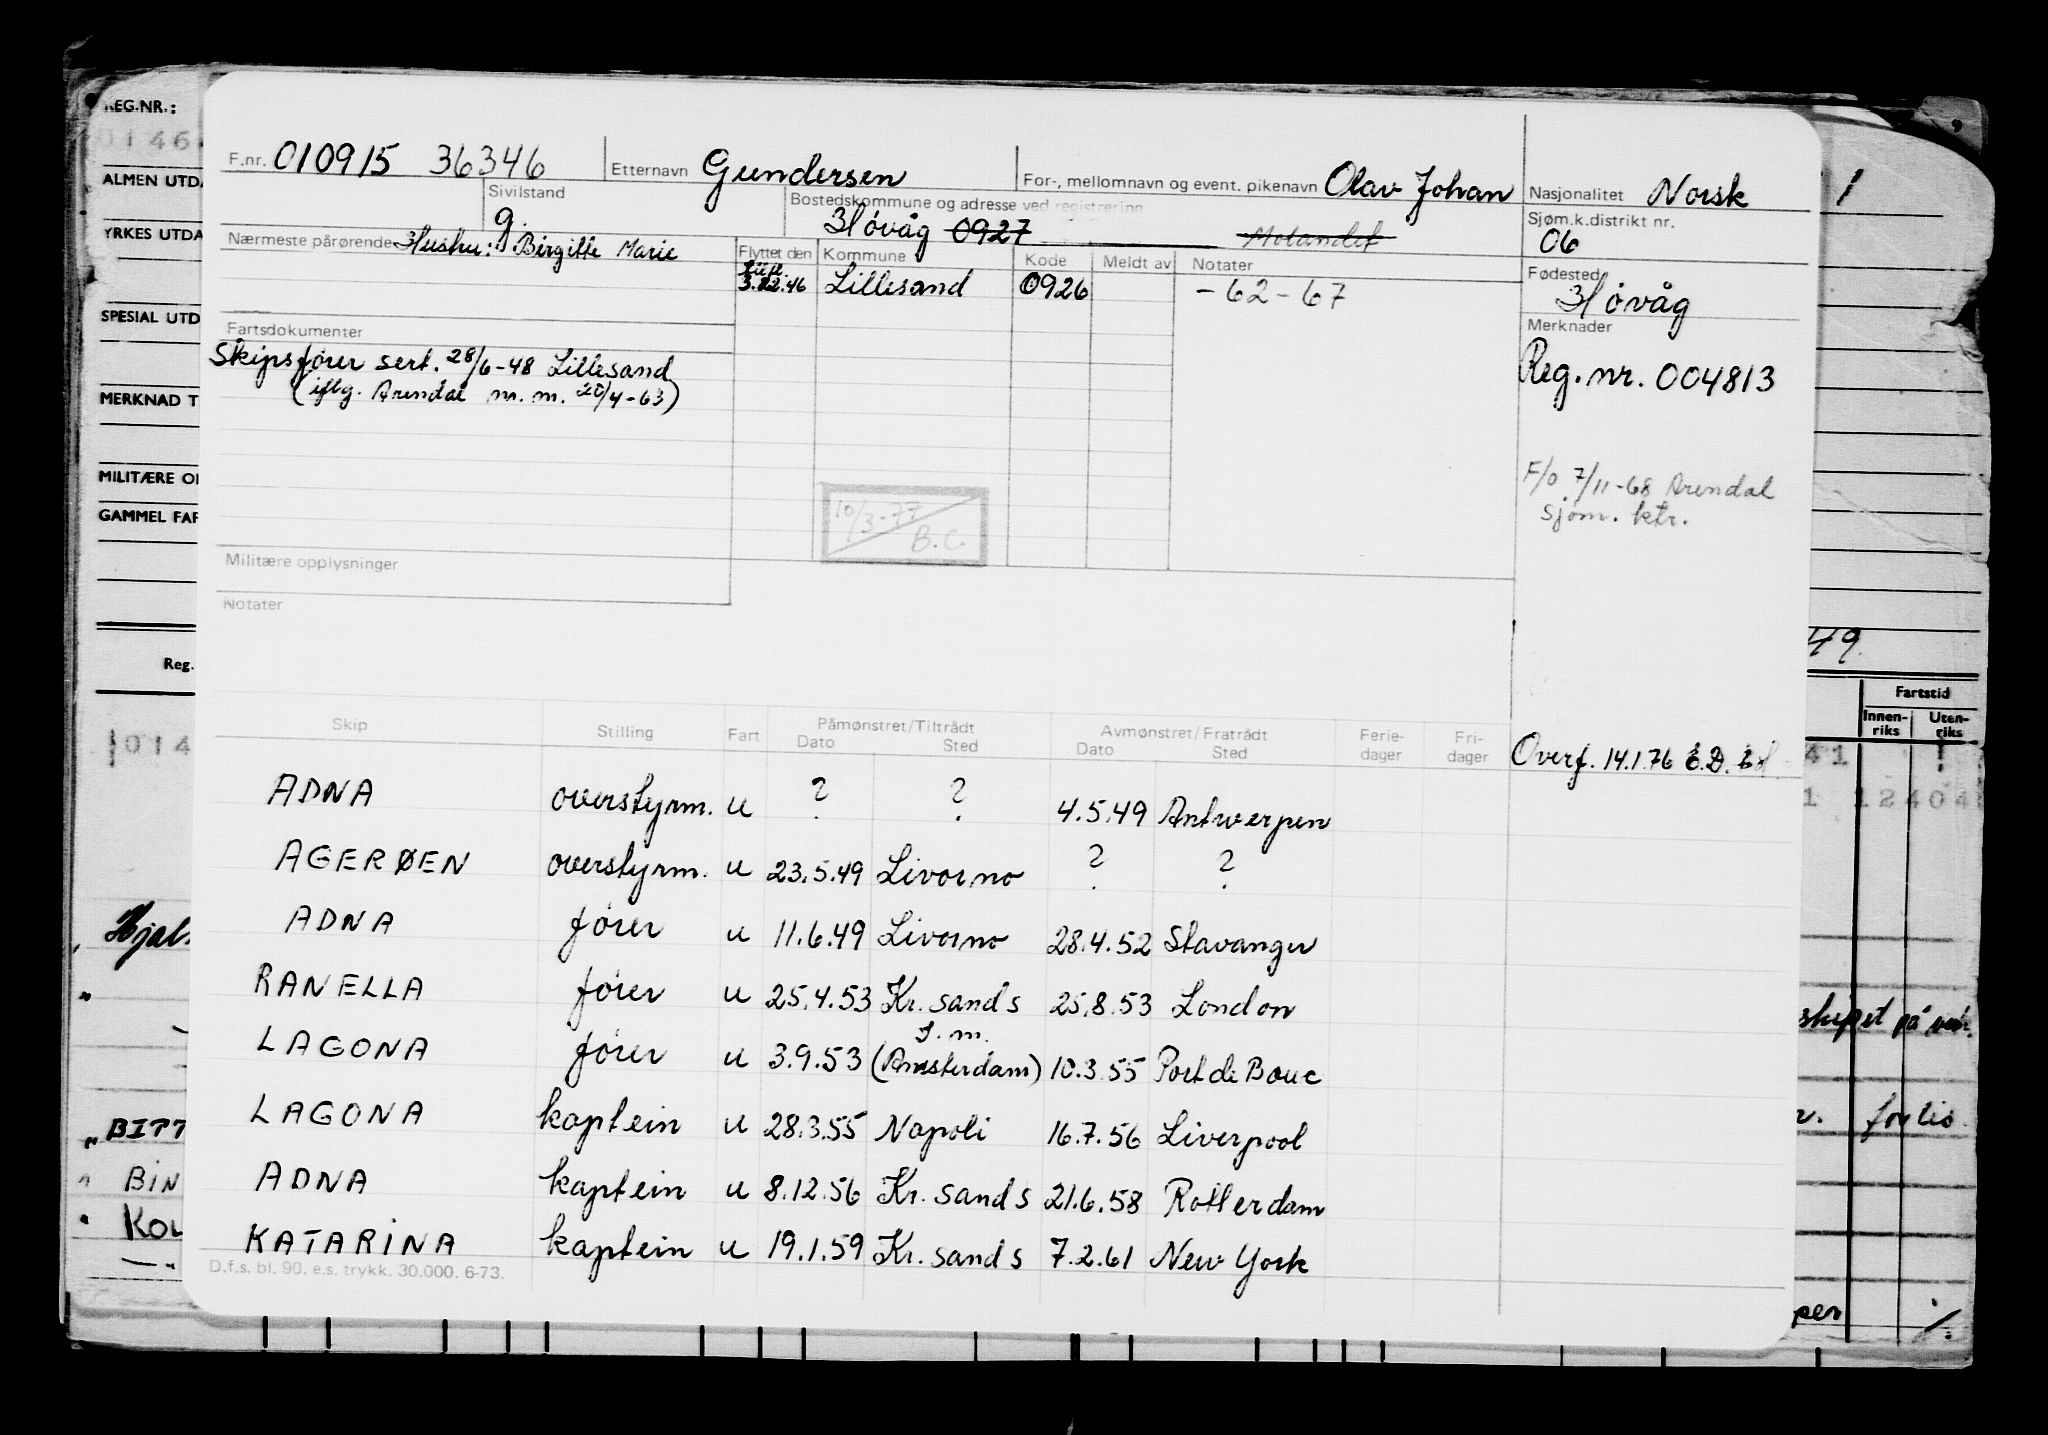 REG.NR.:
0146
F.nr. 010915 36346 Etternavn Gundersen For-, mellomnavn og event. pikenavn Olav Johan Nasjonalitet Norsk 1
ALMEN UTDA
Sivilstand g. Bostedskommune og adresse ved registrering Høvåg 0927 Molandet Sjøm.k.distrikt nr. 06
YRKES UTDA
Nærmeste pårørende Hustru: Birgitte Marie Flyttet den Kommune Kode Meldt av Notater
3.12.46 Lillesand 0926 -62-67
Fødested Høvåg
SPESIAL UTD
Fartsdokumenter Merknader
Skipsfører sert. 28/6-48 Lillesand Reg.nr. 004813
(iflg. Arendal m.m. 20/4-63)
MERKNAD T
MILITÆRE O
F/o 7/11-68 Arendal
sjøm. ktr.
GAMMEL FAR
10/3-77
B.C.
Militære opplysninger
Notater
49.
Reg.
Fartstid
Innen-riks Uten-riks
Skip Stilling Fart Påmønstret/Tiltrådt Dato Sted Avmønstret/Fratrådt Dato Sted Ferie-dager Fri-dager
014 Overf. 14.1.76 41
1 12404
ADNA overstyrm. u ? ? 4.5.49 Antwerpen
AGERØEN overstyrm. u 23.5.49 Livorno ? ?
Hjal.
ADNA fører u 11.6.49 Livorno 28.4.52 Stavanger
RANELLA fører u 25.4.53 Kr.sand s 25.8.53 London
skipet på
LAGONA fører u 3.9.53 f.m. (Amsterdam) 10.3.55 Port de Bouc
LAGONA kaptein u 28.3.55 Napoli 16.7.56 Liverpool
BITT
ADNA kaptein u 8.12.56 Kr.sand s 21.6.58 Rotterdam
BIN
KATARINA kaptein u 19.1.59 Kr.sand s 7.2.61 New York
D.f.s. bl. 90. e.s. trykk. 30.000. 6-73.
per